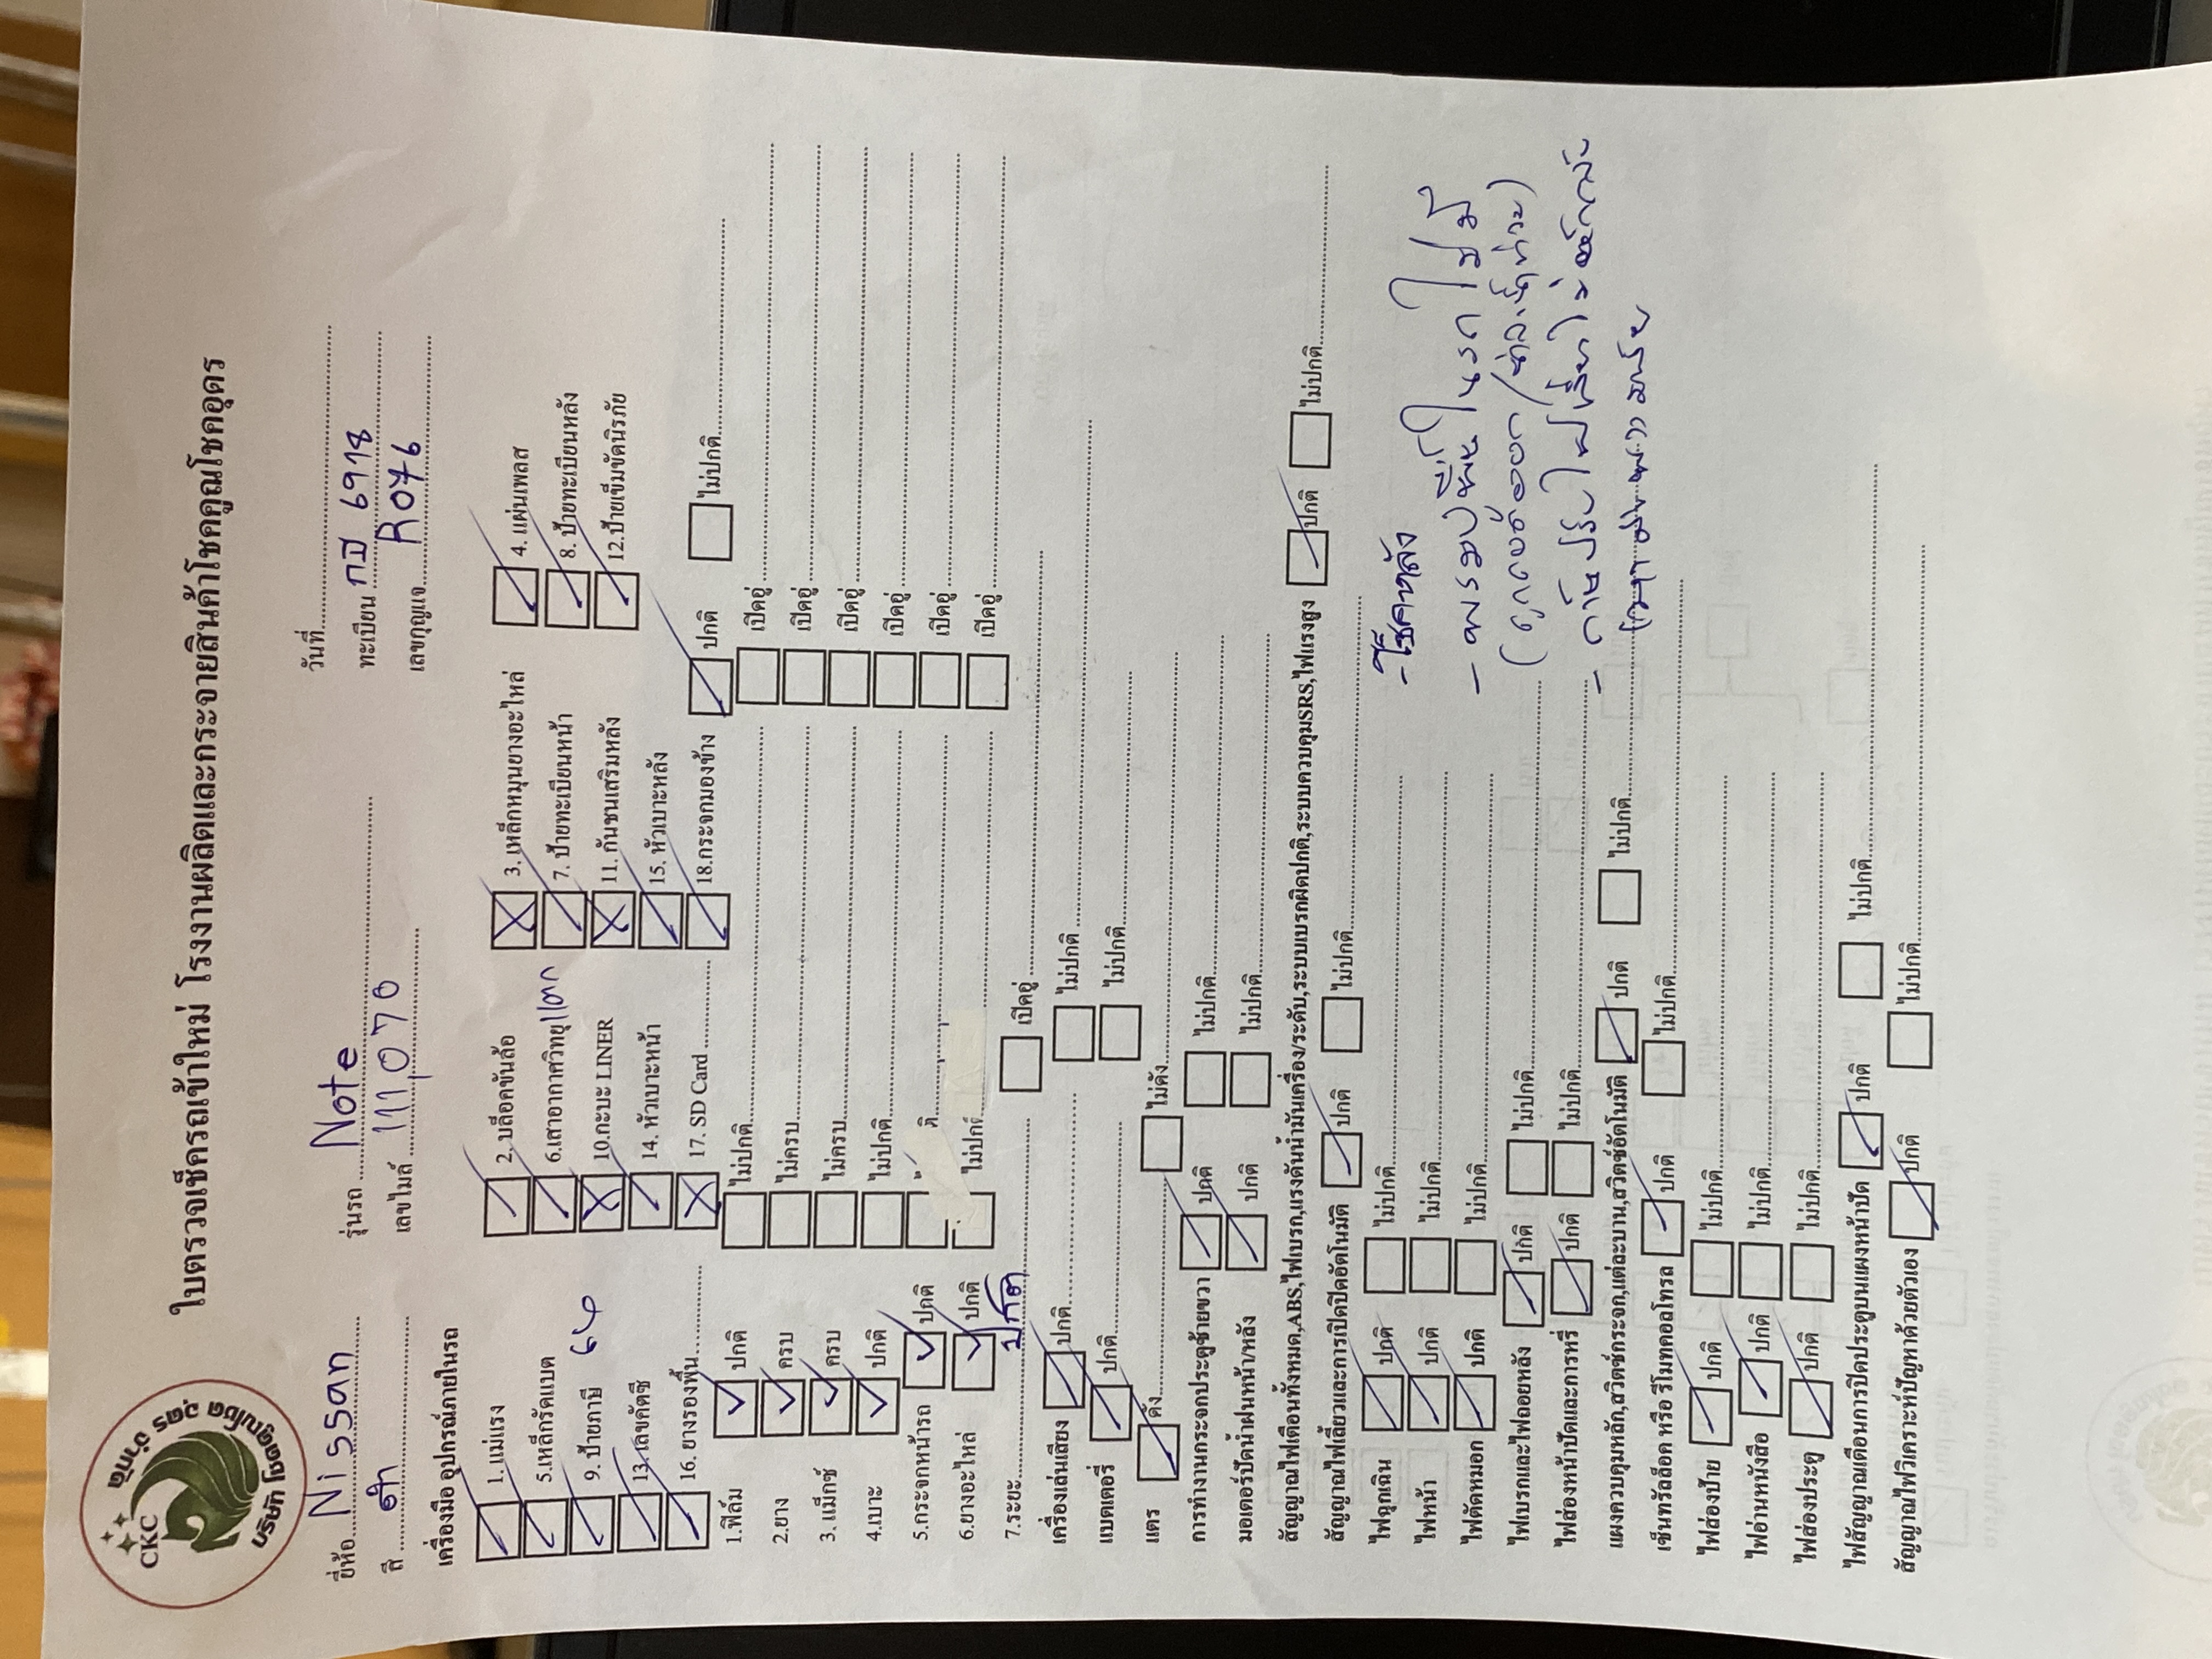 CKC
บริษัท โชคคูณโชค อุดร จำกัด
ใบตรวจเช็ครถเข้าใหม่ โรงงานผลิตและกระจายสินค้าโชคคูณโชคอุดร
วันที่
ยี่ห้อ Nissan รุ่นรถ Note ทะเบียน กป 6978
สี ดำ เลขไมล์ 111,070 เลขกุญแจ R076
เครื่องมือ อุปกรณ์ภายในรถ
1. แม่แรง 2. บล็อคขันล้อ 3. เหล็กหมุนยางอะไหล่ 4. แผ่นเพลส
5.เหล็กรัดแบต 6.เสาอากาศวิทยุ แตก 7. ป้ายทะเบียนหน้า 8. ป้ายทะเบียนหลัง
9. ป้ายภาษี 64 10.กะบะ LINER 11. กันชนเสริมหลัง 12.ป้ายเข็มขัดนิรภัย
13.เลขคัตซี 14. หัวเบาะหน้า 15. หัวเบาะหลัง
16. ยางรองพื้น 17. SD Card 18.กระจกมองข้าง ปกติ ไม่ปกติ
1.ฟิล์ม ปกติ ไม่ปกติ เปิดอยู่
2.ยาง ครบ ไม่ครบ เปิดอยู่
3. แม็กซ์ ครบ ไม่ครบ เปิดอยู่
4.เบาะ ปกติ ไม่ปกติ เปิดอยู่
5.กระจกหน้ารถ ปกติ เปิดอยู่
6.ยางอะไหล่ ปกติ ไม่ปกติ เปิดอยู่
7.ระยะ ปกติ เปิดอยู่
เครื่องเล่นเสียง ปกติ ไม่ปกติ
แบตเตอรี่ ปกติ ไม่ปกติ
แตร ดัง ไม่ดัง
การทำงานกระจกประตูซ้ายขวา ปกติ ไม่ปกติ
มอเตอร์ปัดน้ำฝนหน้า/หลัง ปกติ ไม่ปกติ
สัญญาณไฟเตือนทั้งหมด,ABS,ไฟเบรก,แรงดันน้ำมันเครื่อง/ระดับ,ระบบเบรกผิดปกติ,ระบบควบคุมSRS,ไฟแรงสูง ปกติ ไม่ปกติ
สัญญาณไฟเลี้ยวและการเปิดปิดอัตโนมัติ ปกติ ไม่ปกติ
ไฟฉุกเฉิน ปกติ ไม่ปกติ
- โช๊คหลัง
ไฟหน้า ปกติ ไม่ปกติ
ไฟตัดหมอก ปกติ ไม่ปกติ
ไฟเบรกและไฟถอยหลัง ปกติ ไม่ปกติ
ไฟส่องหน้าปัดและการหรี่ ปกติ ไม่ปกติ
แผงควบคุมหลัก,สวิตช์กระจก,แต่ละบาน,สวิตช์อัตโนมัติ ปกติ ไม่ปกติ
เซ็นทรัลล็อค หรือ รีโมทคอลโทรล ปกติ ไม่ปกติ
ไฟส่องป้าย ปกติ ไม่ปกติ
ไฟอ่านหนังสือ ปกติ ไม่ปกติ
ไฟส่องประตู ปกติ ไม่ปกติ
ไฟสัญญาณเตือนการปิดประตูบนแผงหน้าปัด ปกติ ไม่ปกติ
สัญญาณไฟวิเคราะห์ปัญหาด้วยตัวเอง ปกติ ไม่ปกติ